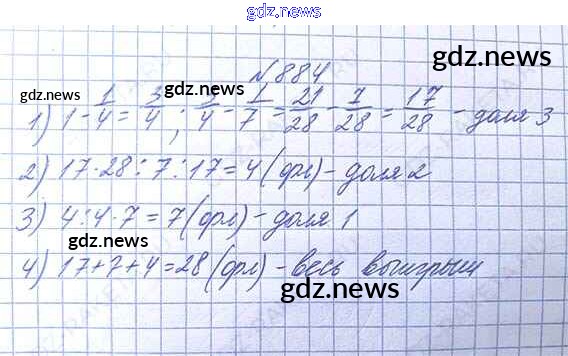 gdz.news
№884
gdz.news
gdz.news
gdz.news
1) 1 - 1/4 = 3/4 ; 3/4 - 1/7 = 21/28 - 7/28 = 17/28 - доля 3
2) 17·28:7:17=4(фл) - доля 2
3) 4:4·7=7(фл) - доля 1
gdz.news
4) 17+7+4=28(фл) - весь выигрыш
gdz.news